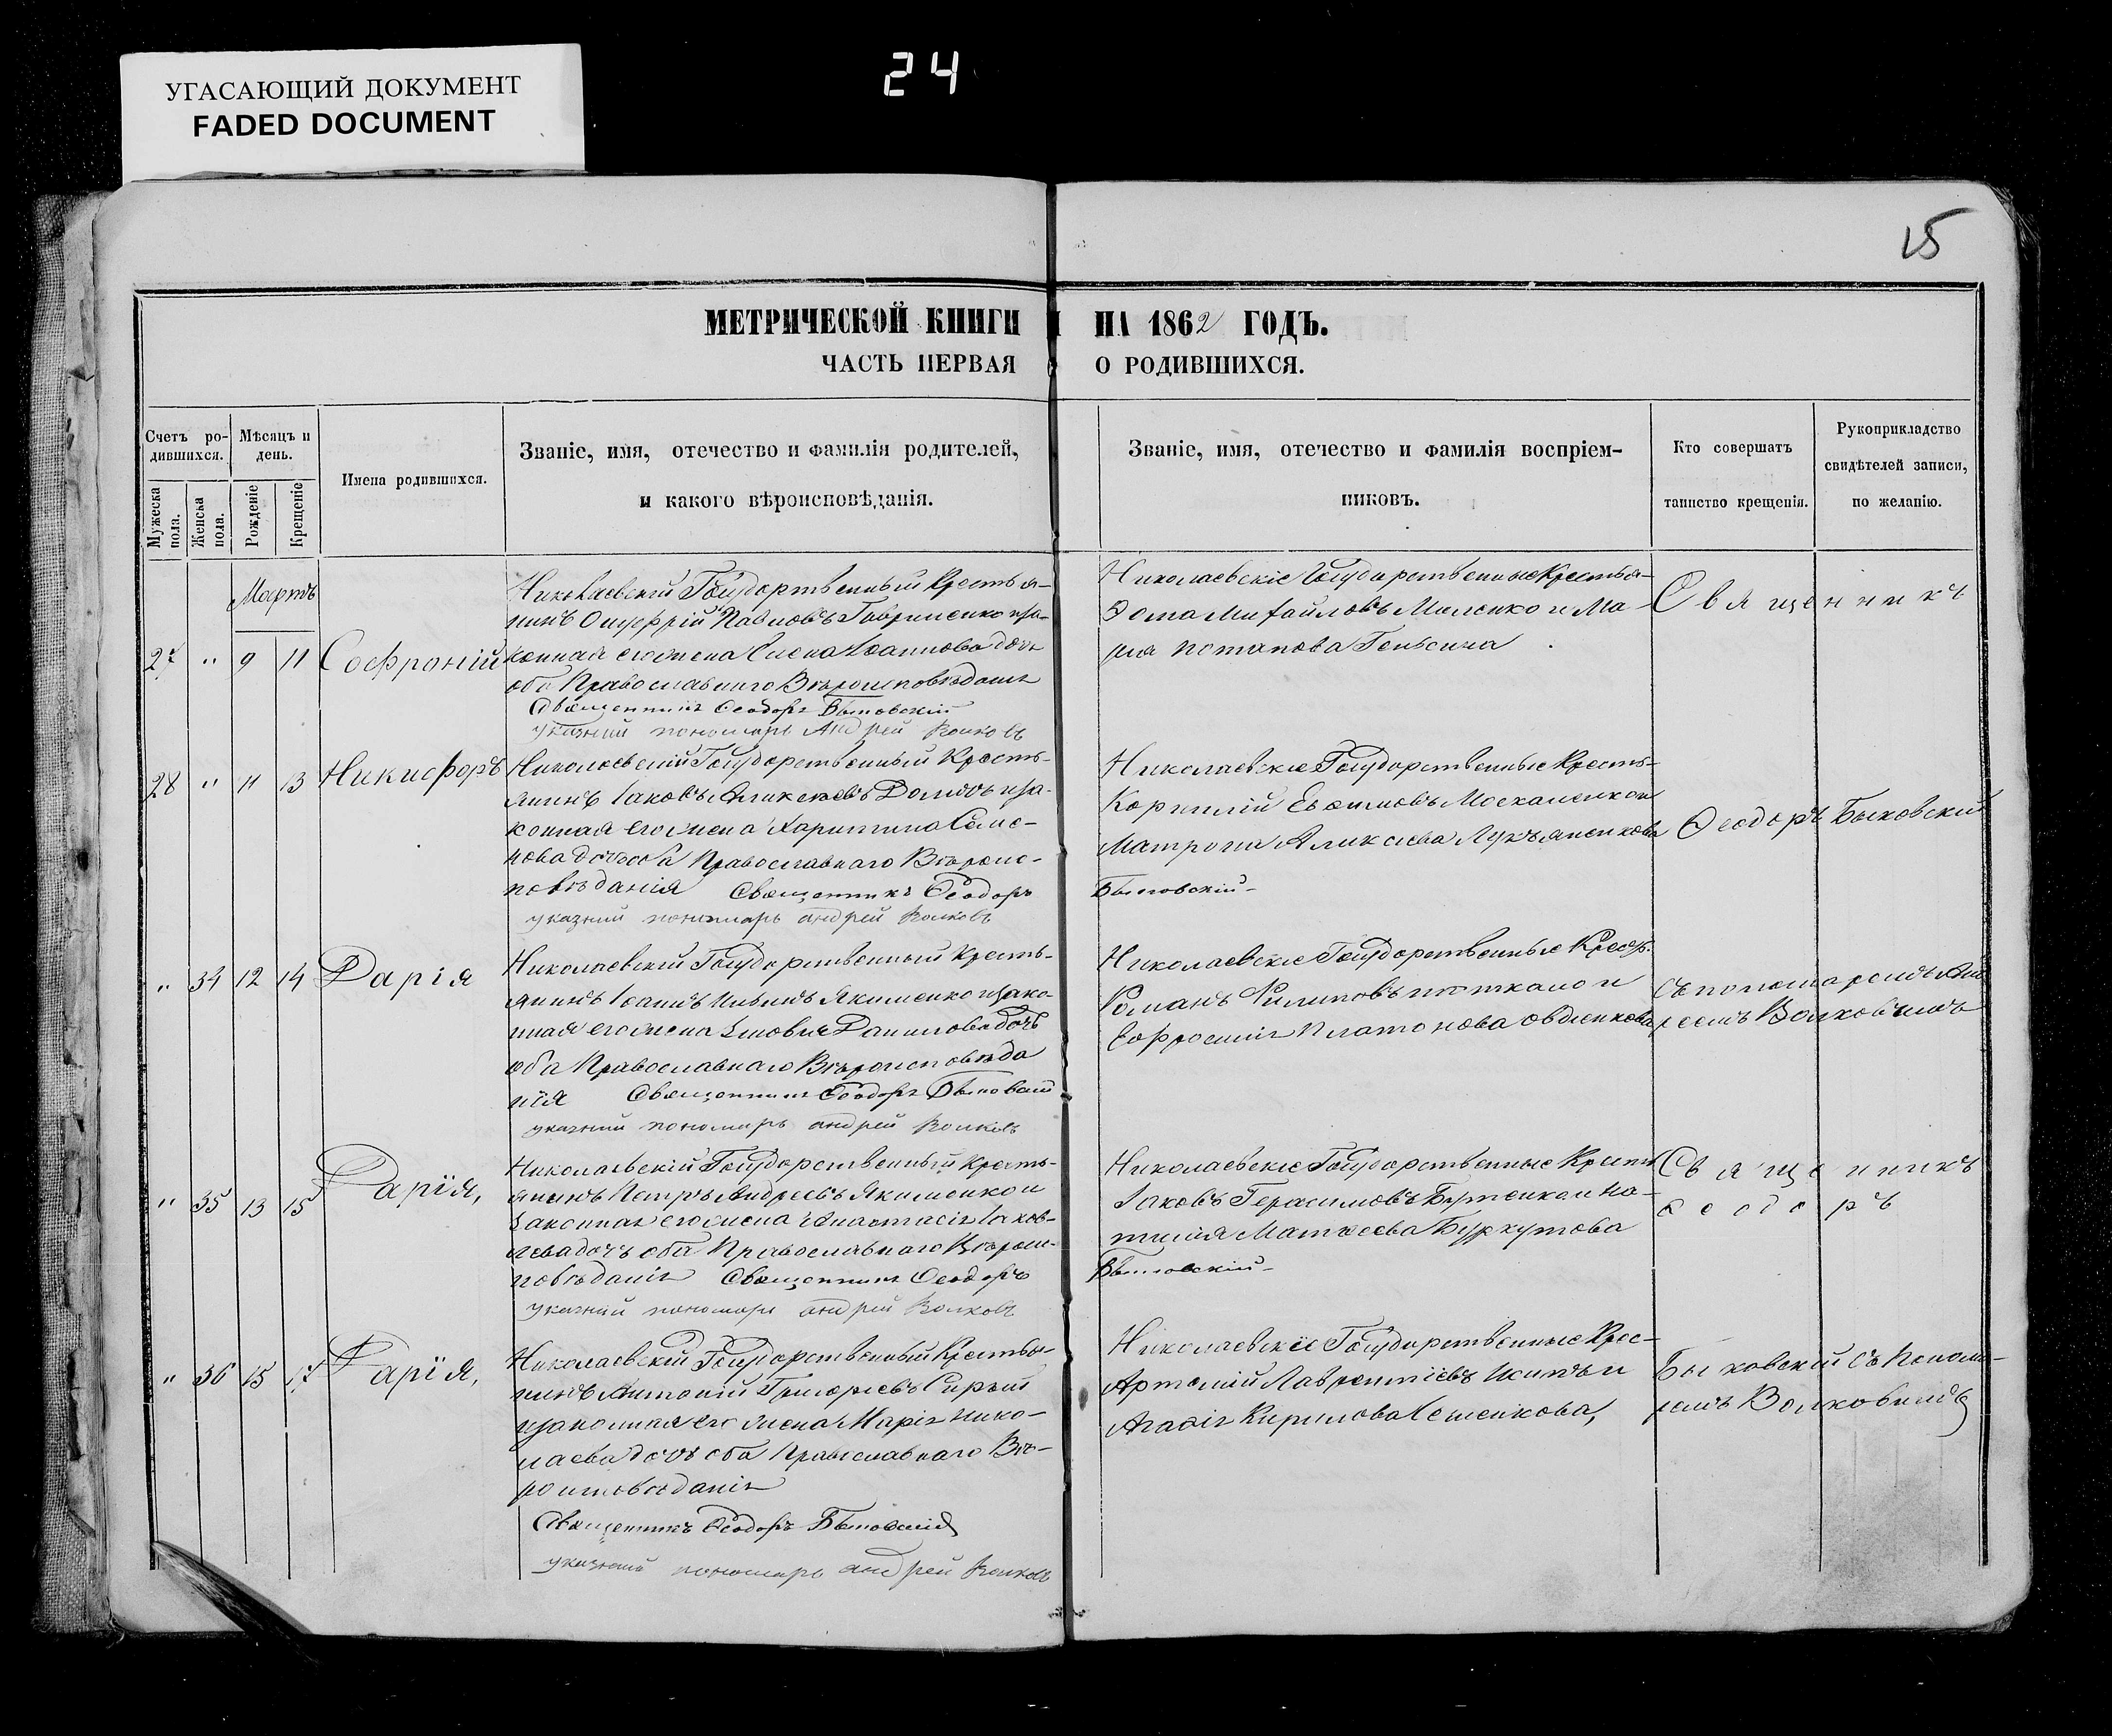 УГАСАЮЩИЙ ДОКУМЕНТ
FADED DOCUMENT
24
15
МЕТРИЧЕСКОЙ КНИГИ НА 1862 ГОДЪ.
ЧАСТЬ ПЕРВАЯ О РОДИВШИХСЯ.
Счетъ ро-
дившихся.
Мужеска пола.
Женска пола.
Мѣсяцъ и
день.
Рожденіе
Крещеніе
Имена родившихся.
Званіе, имя, отечество и фамилія родителей,
и какого вѣроисповѣданія.
Званіе, имя, отечество и фамилія воспріем-
никовъ.
Кто совершатъ
таинство крещенія.
Рукоприкладство
свидѣтелей записи,
по желанію.
Мартъ
27 " 9 11 Софроній
Николаевскій Государственный Крестья-
нинъ Онуфрій Павловъ Гавриленко и за-
конная его жена Елена Іоаннова дочь
оба Православнаго Вѣроисповѣданія
Священникъ Ѳеодоръ Быковскій
указный пономарь Андрей Волковъ
Николаевскіе Государственные Крестья-
Ѳома Михайловъ Миленко и Ма-
рія Потапова
Священникъ
28 " 11 13 Никифоръ
Николаевскій Государственный Кресть-
янинъ Іаковъ и за-
конная его жена Харитина Семе-
нова дочь оба Православнаго Вѣроис-
повѣданія Священникъ Ѳеодоръ
указный пономарь Андрей Волковъ
Николаевскіе Государственные Кресть-
Корнилій Евѳимовъ Москаленко и
Матрона Аликсіева Лукъяненкова
Быковскій
Ѳеодоръ Быковскій
" 34 12 14 Дарія
Николаевскій Государственный Кресть-
янинъ Іоаннъ Ильинъ Якименко и зако-
нная его жена Зиновія Данилова дочь
оба Православнаго Вѣроисповѣда
нія Священникъ Ѳеодоръ Быковскій
указный пономарь Андрей Волковъ
Николаевскіе Государственные Крест.
Романъ Филиповъ и
Евфросинія Платонова Овдіенкова
съ пономаремъ Анд
реемъ Волковымъ
" 35 13 15 Дарія,
Николаевскій Государственный Кресть-
янинъ Петръ Андреевъ Якименко и
законная его жена Анастасія Іаков-
лева дочь оба Православнаго Вѣроис-
повѣданія Священникъ Ѳеодоръ
указный пономарь Андрей Волковъ
Николаевскіе Государственные Кресть
Іаковъ Герасимовъ Бутенко и На-
талія Матвеева Буркутова
Быковскій
Священникъ
Ѳеодоръ
" 36 15 17 Дарія,
Николаевскій Государственный Крестья-
нинъ Антоній Григорьевъ Сирый
и законная его жена Марія Нико-
лаева дочь оба Православнаго Вѣ-
роисповѣданія
Священникъ Ѳеодоръ Быковскій
указный пономарь Андрей Волковъ
Николаевскіе Государственные Крес-
Артемій Лаврентіевъ и
Агафія Кирилова Семенкова,
Быковскій съ Понома-
ремъ Волковымъ